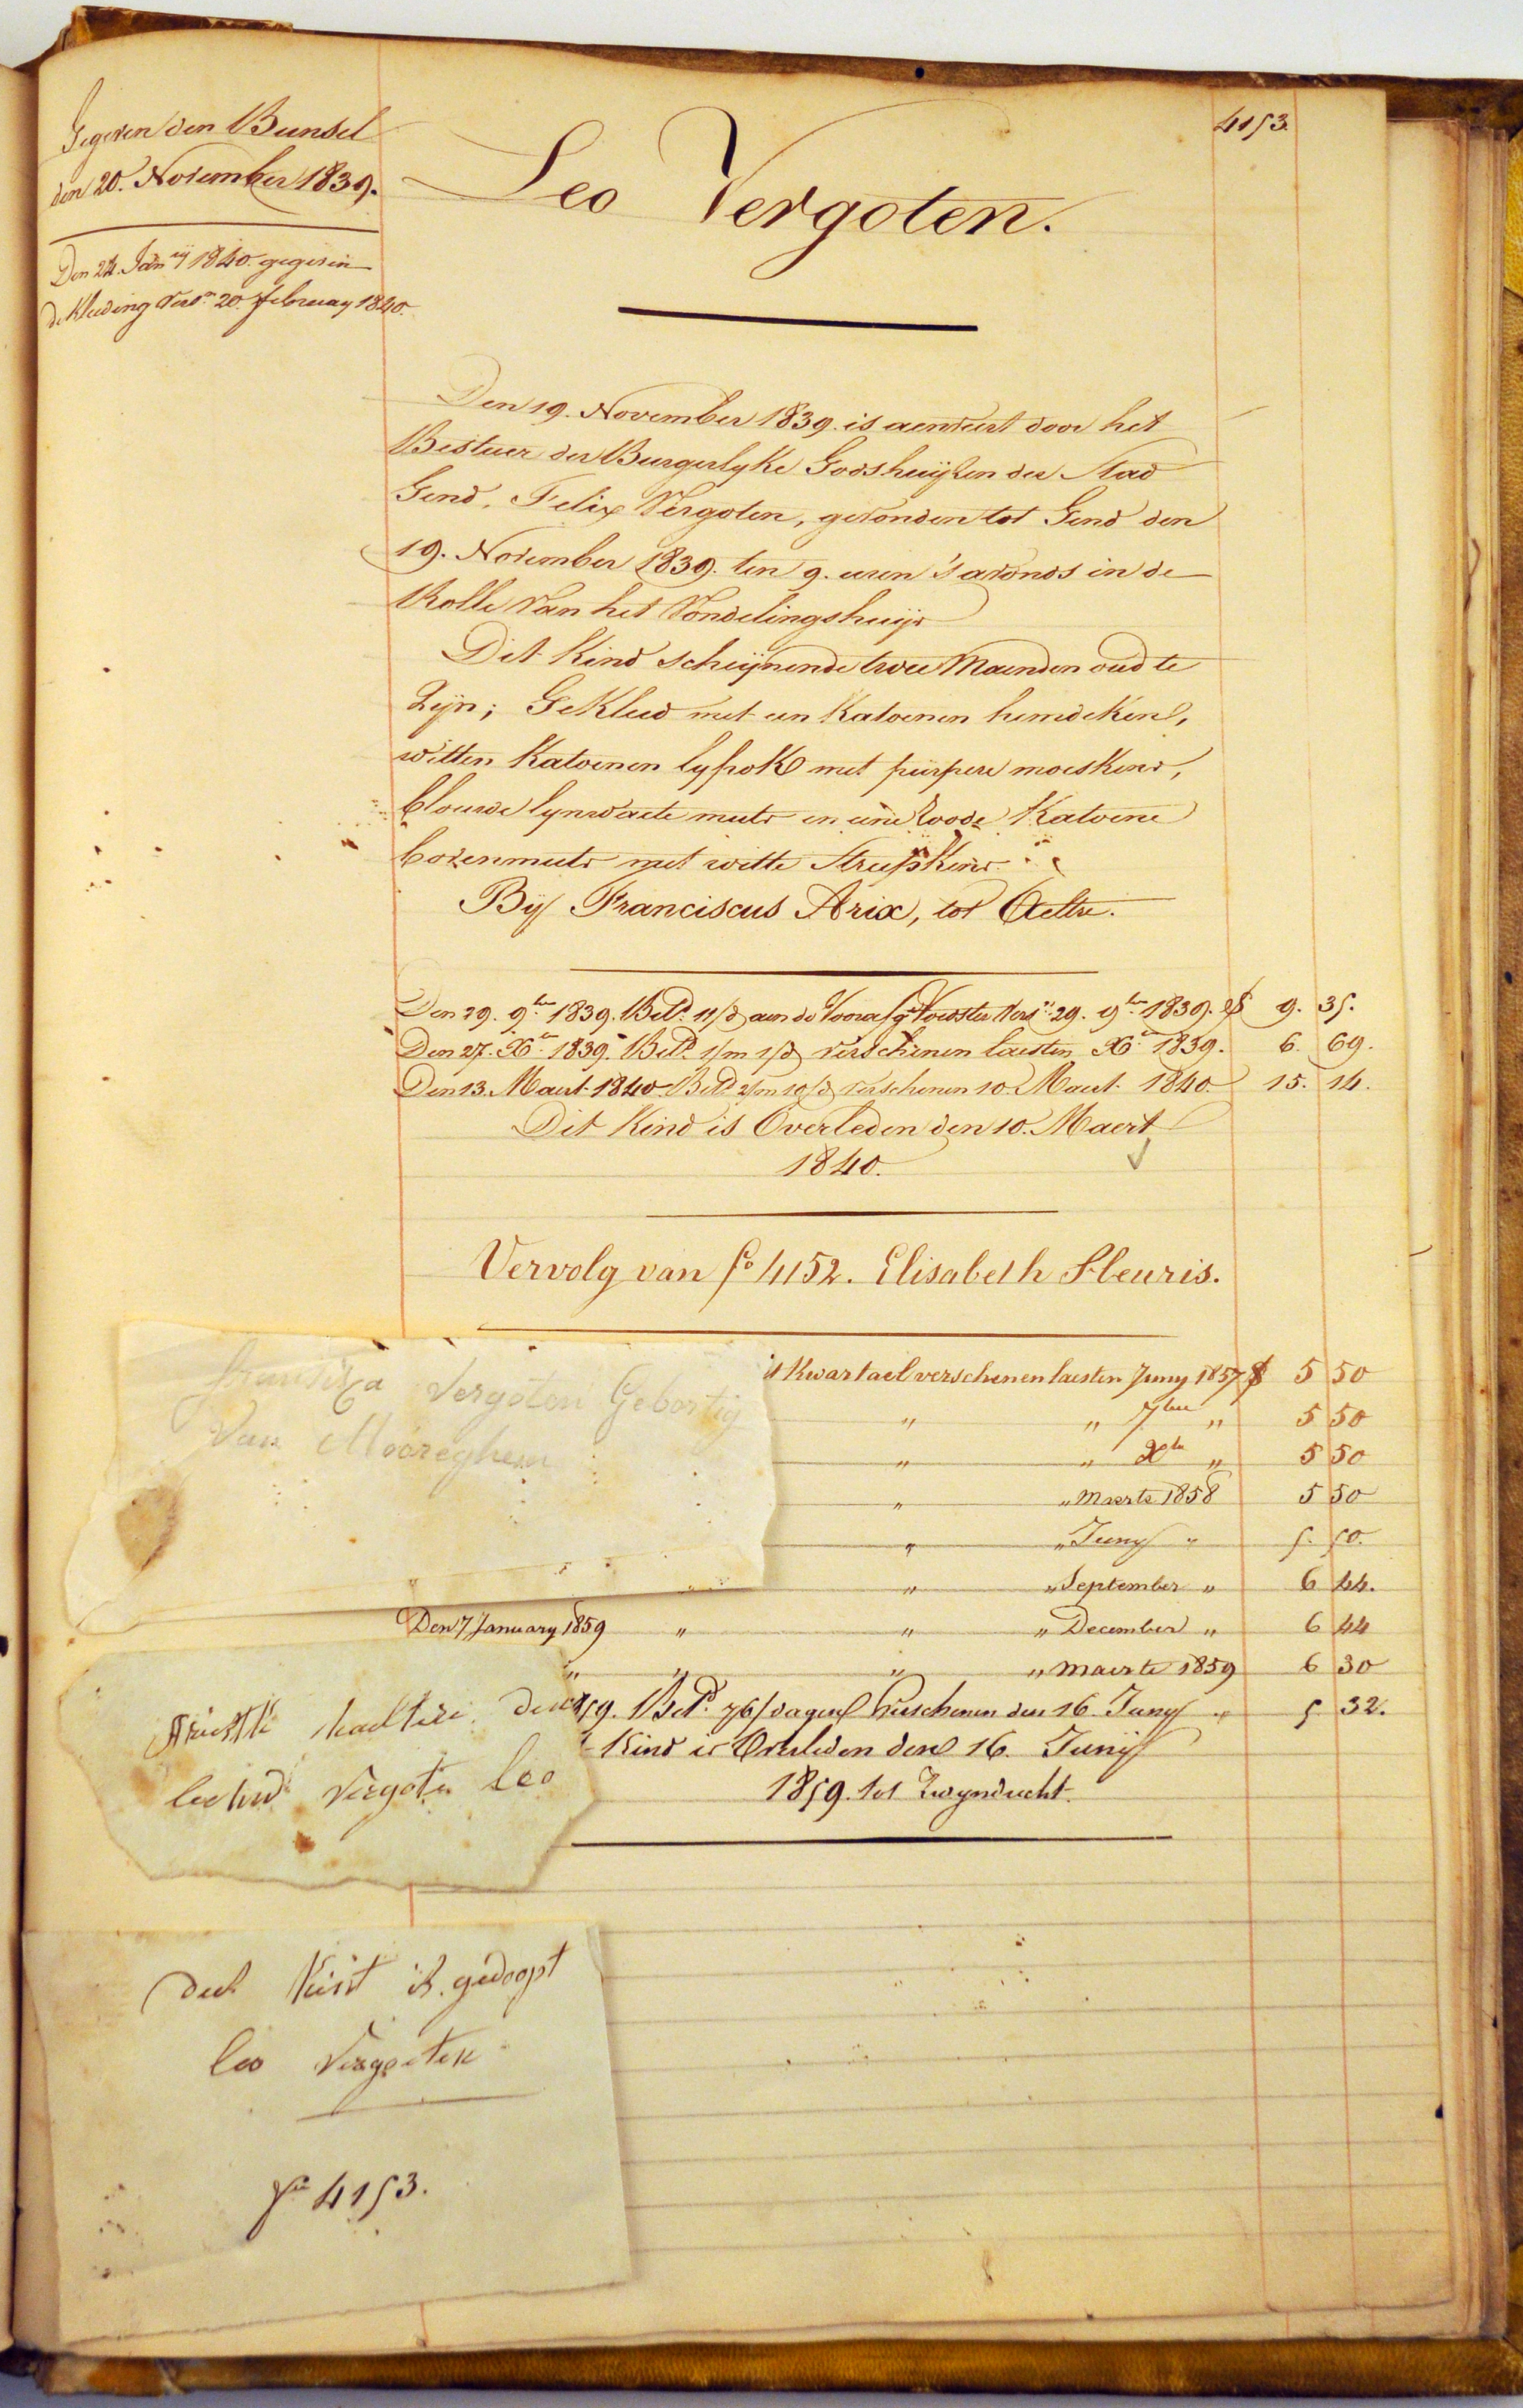 4153.
Gegeven den Bunsel
den 20. November 1839.
Den 24. Janry 1840. gegeven
de Kleeding Versn. 20. february 1840.
Leo Vergoten.
Den 19. November 1839. is aenveert door het
Bestuer der Burgerlyke Godshuijzen der Stad
Gend, Felix Vergoten, gevonden tot Gend den
19. November 1839. ten 9. uren 's avonds in de
Rolle van het Vondelingshuijs
Dit Kind scheijnende twee Maenden oud te
Zijn; Gekleed met een Katoenen hemdeken,
witten Katoenen lyfrok met purpere moeskens,
blouwe lynwaete muts en eene roode Katoene
bovenmuts met witte Streepkens.
Bij Franciscus Arix, tot Aeltre.
Den 29. 9ber 1839. Betd. 11/d aen de Voorasg Voedster Versn 29. 9ber 1839. 9. 35.
Den 27. Xber 1839. Betd. 1/m 1/d verschenen laesten Xber 1839. 6. 69.
Den 13. Maert 1840 Betd 2/m 10/d verschenen 10. Maert 1840. 15. 14.
Dit Kind is Overleden den 10. Maert
1840.
Vervolg van fo 4152. Elisabeth Fleuris.
Kwartael verschenen laesten Juny 1857 5 50
" " 7ber " 5 50
" " Xber " 5 50
" " Maerte 1858 5 50
" " Juny " 5. 50.
" " September " 6 44.
Den 7 January 1859 " " " December " 6 44
" " " " Maerte 1859 6 30
59. Betd. 76/dagen Verschenen den 16. Juny " 5 32.
Kind is Overleden den 16. Junij
1859. tot Zwyndrecht.
Vergoten Gebortig
Van Mooreghem
Vergoten leo
deet Kint is gedoopt
leo Vergoten
fo 4153.